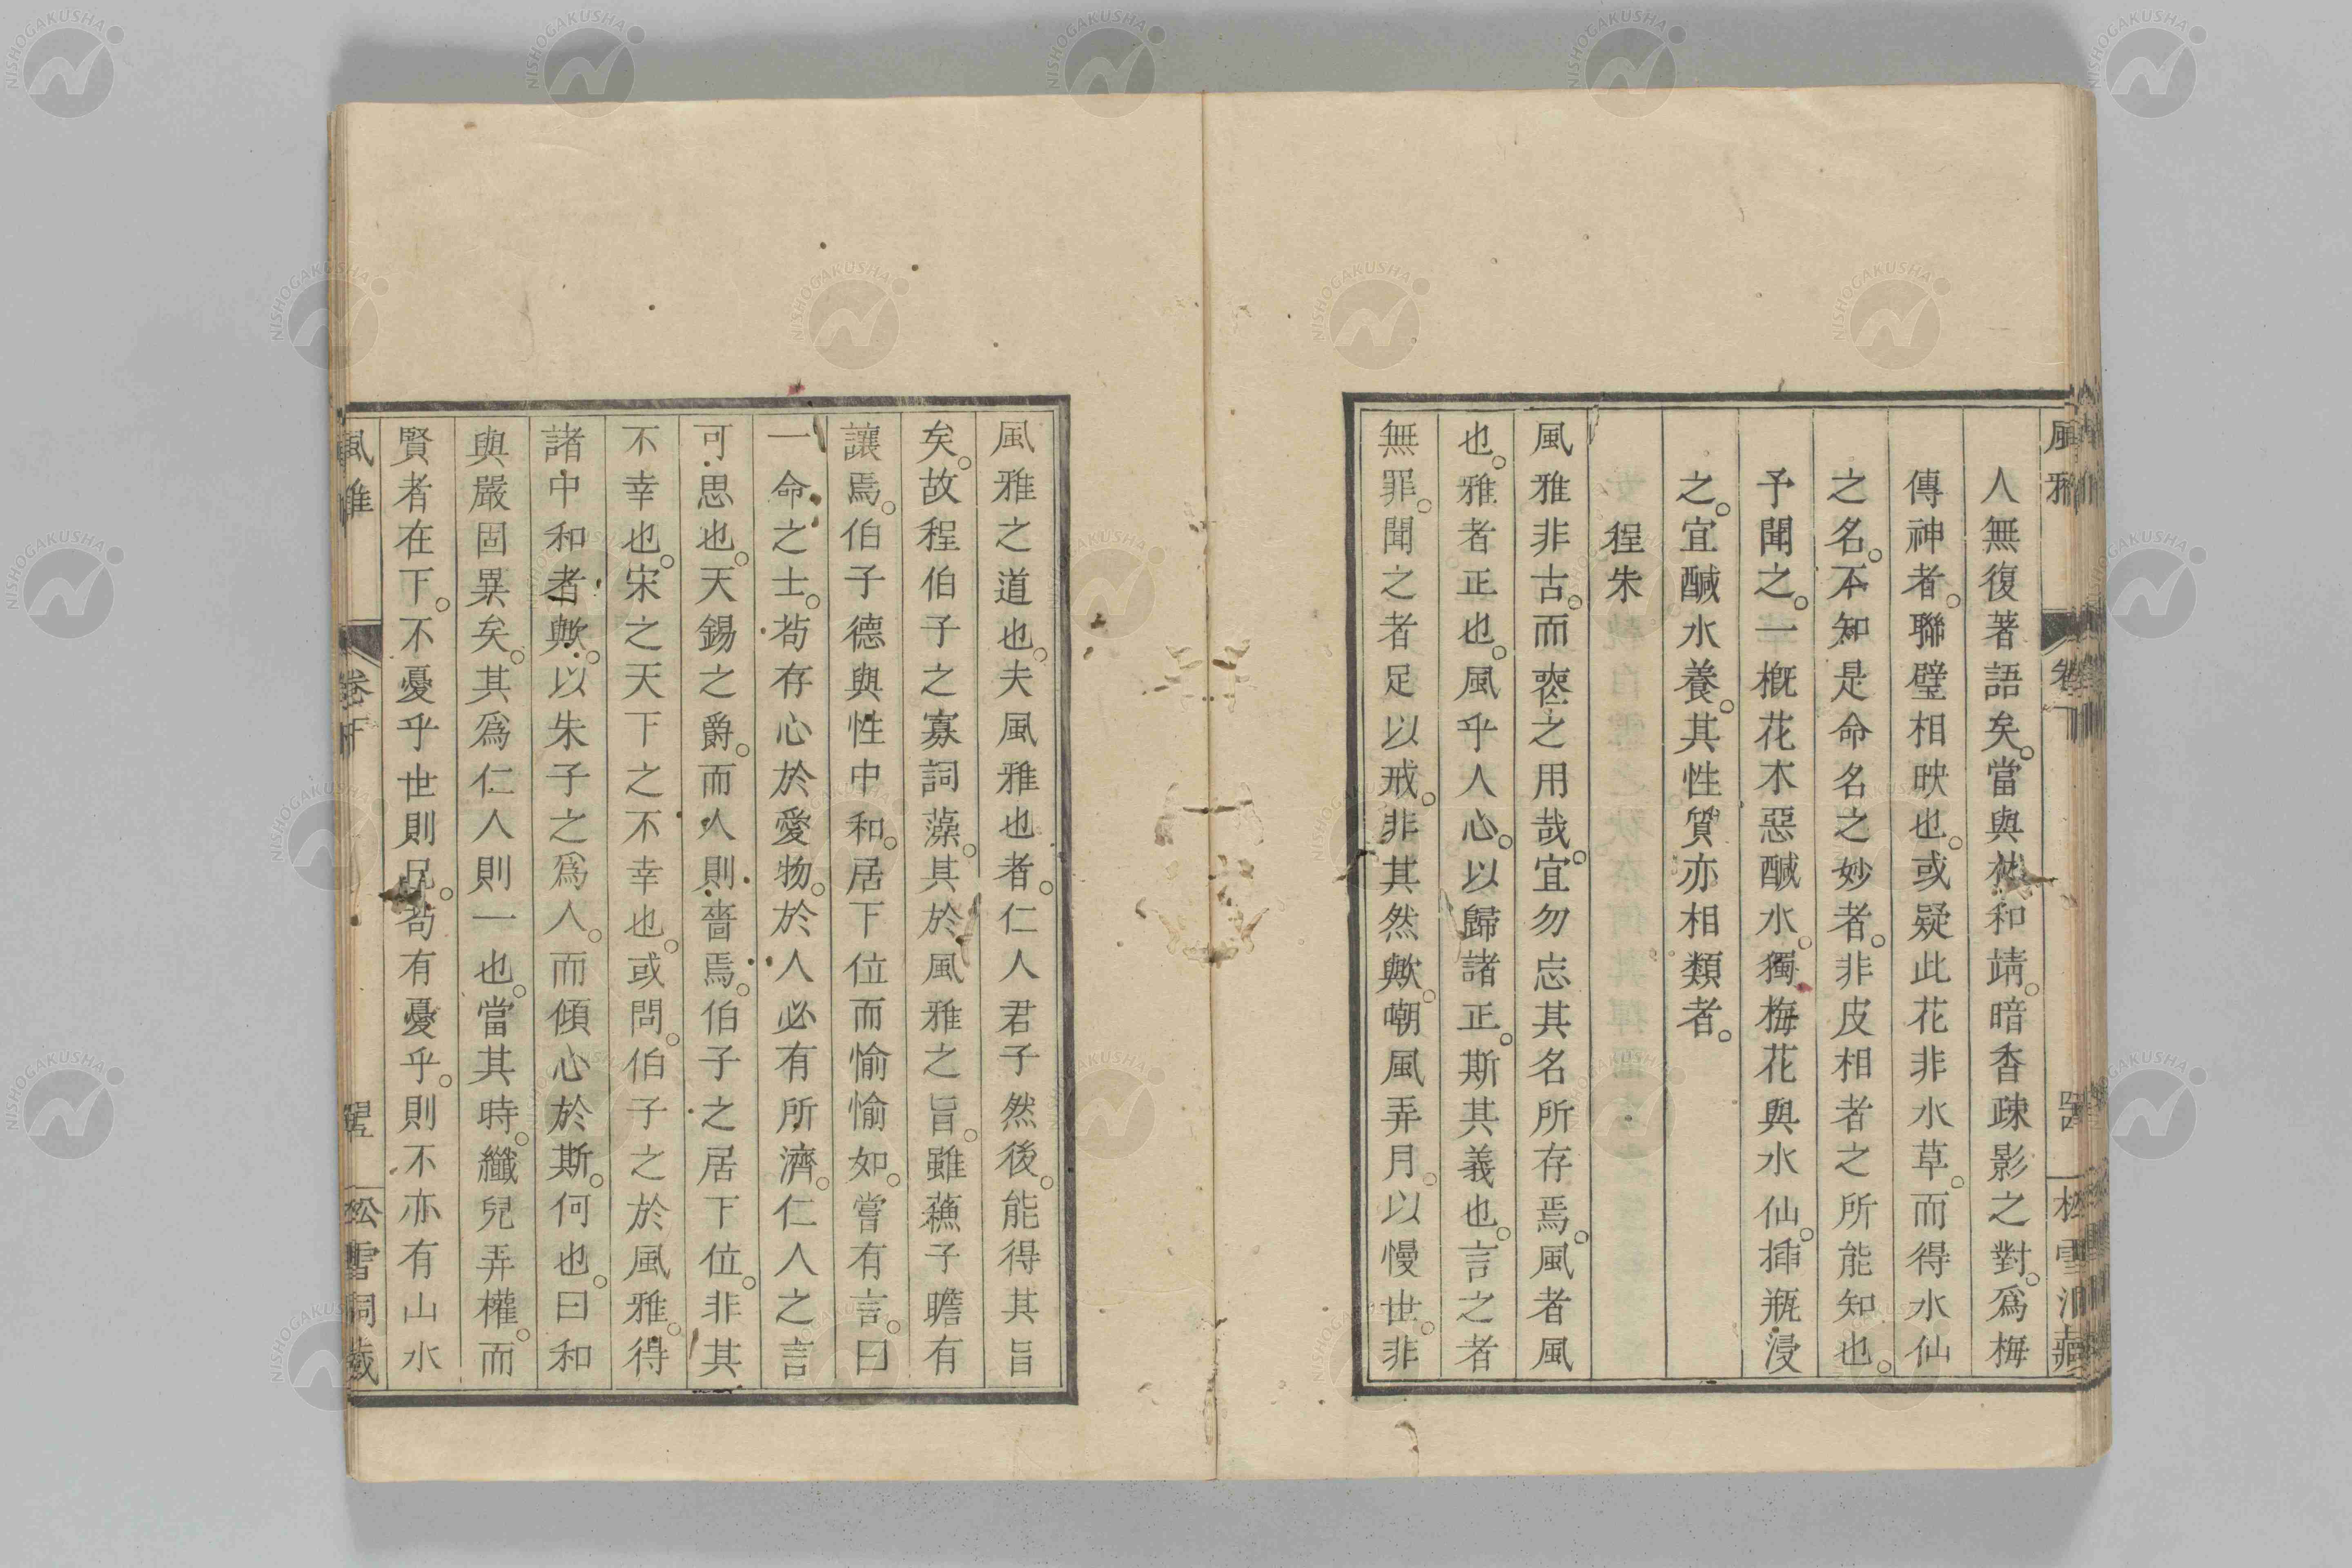 人無復著語矣。當與林和靖。暗香疎影之對。爲梅
傳神者。聯璧相映也。或疑此花非水草。而得水仙
之名。不知是命名之妙者。非皮相者之所能知也。
予聞之。一概花木惡醎水。獨梅花與水仙。揷瓶浸
之。宜醎水養。其性質亦相類者。
程朱
風雅非古。而奕之用哉。宜勿忘其名所存焉。風者風
也。雅者正也。風乎人心。以歸諸正。斯其義也。言之者
無罪。聞之者足以戒。非其然歟。嘲風弄月。以慢世。非
風雅之道也。夫風雅也者。仁人君子然後。能得其旨
矣。故程伯子之寡詞藻。其於風雅之旨。雖蘓子瞻有
讓焉。伯子德與性中和。居下位而愉愉如。嘗有言。曰
一命之士。苟存心於愛物。於人必有所濟。仁人之言
可思也。天錫之爵。而人則嗇焉。伯子之居下位。非其
不幸也。宋之天下之不幸也。或問。伯子之於風雅。得
諸中和者歟。以朱子之爲人。而傾心於斯。何也。曰和
與嚴固異矣。其爲仁人則一也。當其時。纖兒弄權。而
賢者在下。不憂乎世則已。苟有憂乎。則不亦有山水
風雅
卷下
松雪洞藏